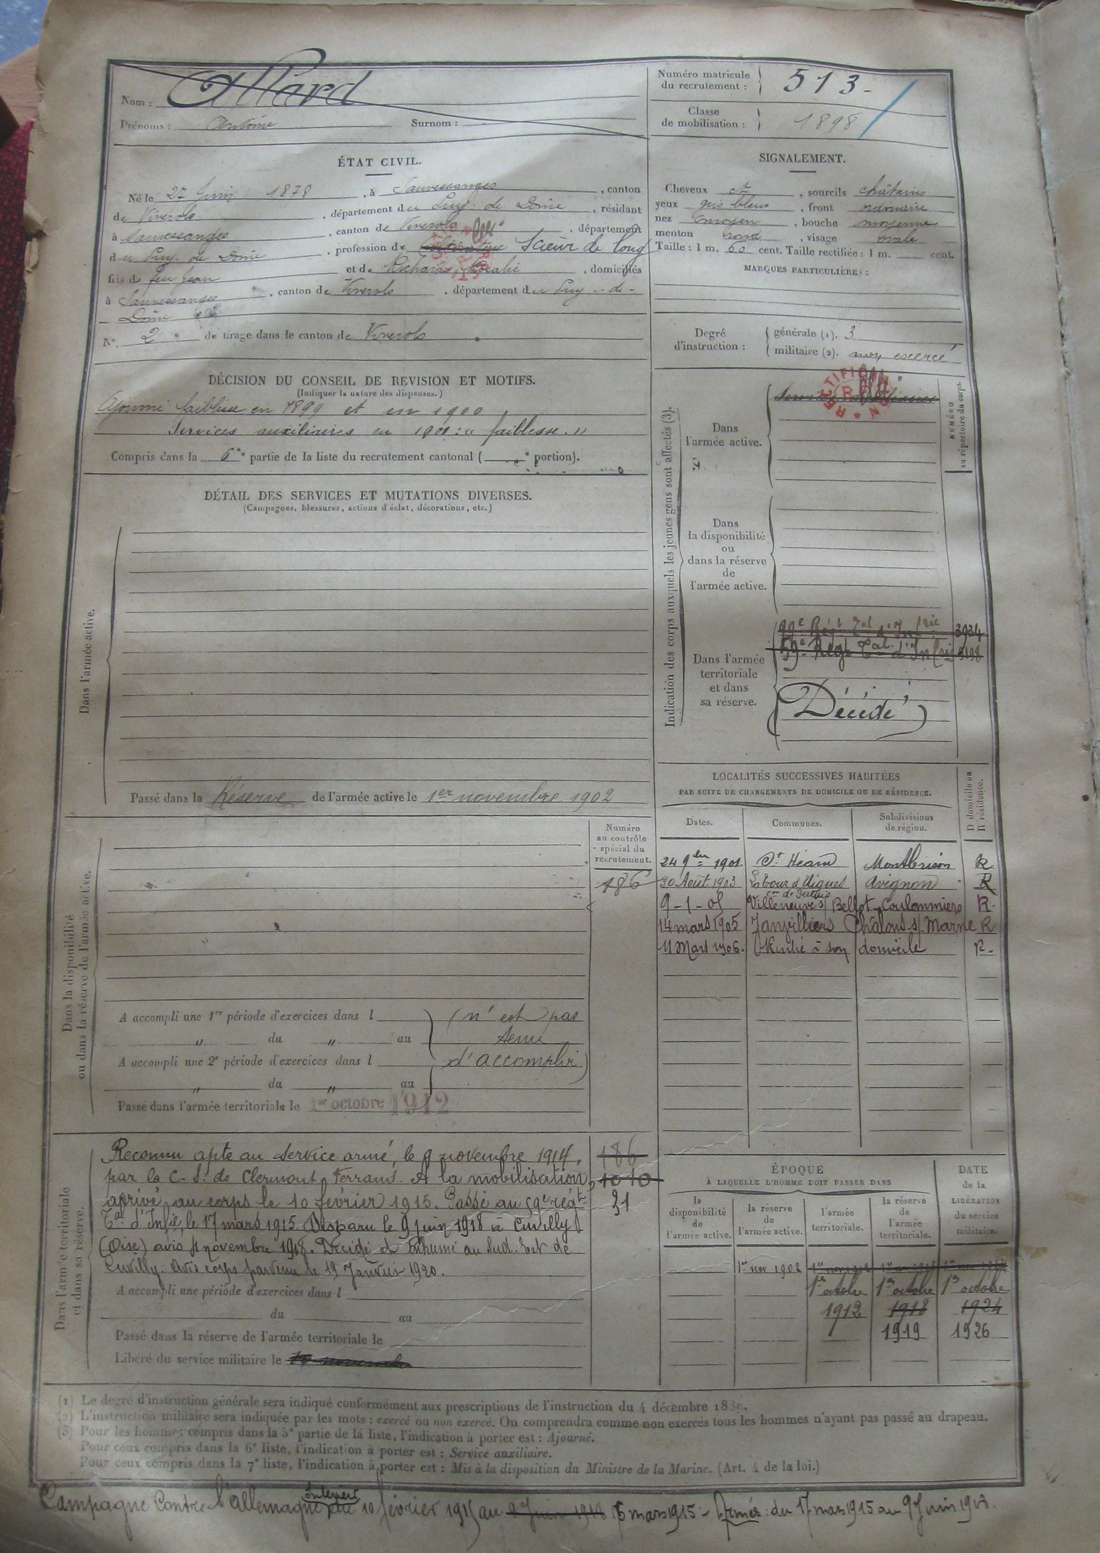 Nom : Allard
Prénoms : Antoine Surnom :
Numéro matricule du recrutement : 513
Classe de mobilisation : 1898
ÉTAT CIVIL.
Né le 27 Juin 1878, à Sauvessanges, canton
de Viverols, département du Puy-de-Dôme, résidant
à Sauvessanges, canton de Viverols, département
du Puy de Dôme, profession de Scieur de long
fils de feu Jean et de Rosalie, domiciliés
à Sauvessanges, canton de Viverols, département du Puy-de-
Dôme
N° 2 de tirage dans le canton de Viverols
SIGNALEMENT.
Cheveux ch, sourcils châtains
yeux gris bleus, front ordinaire
nez moyen, bouche moyenne
menton rond, visage ovale
Taille : 1 m. 60 cent. Taille rectifiée : 1 m. cent.
MARQUES PARTICULIÈRES :
Degré d'instruction : générale (1). 3
militaire (2). non exercé
DÉCISION DU CONSEIL DE REVISION ET MOTIFS.
(Indiquer la nature des dispenses.)
Ajourné faiblesse en 1899 et en 1900
Services auxiliaires en 1901 : faiblesse
Compris dans la 6e partie de la liste du recrutement cantonal ( portion).
DÉTAIL DES SERVICES ET MUTATIONS DIVERSES.
(Campagnes, blessures, actions d'éclat, décorations, etc.)
Dans l'armée active.
Passé dans la Réserve de l'armée active le 1er novembre 1902
Indication des corps auxquels les jeunes gens sont affectés (3).
NUMÉRO au répertoire du corps.
Dans l'armée active.
RECTIFICATION
Dans la disponibilité ou dans la réserve de l'armée active.
Dans l'armée territoriale et dans sa réserve.
99e Rég t Tal d'Infrie 3934
59e Régt Tal d'Infie
(Décédé)
LOCALITÉS SUCCESSIVES HABITÉES
PAR SUITE DE CHANGEMENTS DE DOMICILE OU DE RÉSIDENCE.
Dates. Communes. Subdivisions de région. D domicile ou R résidence.
24 9bre 1901 St Héand Montbrison R
30 Août 1903 La Tour d'Aigues Avignon R
9-1-05 Villeneuve s/ Bellot Coulommiers R
14 mars 1905 Janvilliers Châlons s/ Marne R
11 Mars 1906 Rentré à son domicile R
Dans la disponibilité ou dans la réserve de l'armée active.
Numéro au contrôle spécial du recrutement.
186
A accompli une 1re période d'exercices dans l (n'est pas
du au tenu
A accompli une 2e période d'exercices dans l d'accomplir)
du au
Passé dans l'armée territoriale le 1er octobre 1912
Dans l'armée territoriale et dans sa réserve.
Reconnu apte au service armé, le 9 novembre 1914, 186
par le C. S. de Clermont Ferrand. A la mobilisation, 1010
arrivé au corps le 10 février 1915. Passé au 59e régt 31
Tal d'Infie le 17 mars 1915. Disparu le 9 juin 1918 à Cuvilly
(Oise) avis novembre 1918. Décédé et Inhumé au Sud-Est de
Cuvilly. Avis corps parvenu le 19 Janvier 1920.
A accompli une période d'exercices dans l
du au
Passé dans la réserve de l'armée territoriale le
Libéré du service militaire le
ÉPOQUE
À LAQUELLE L'HOMME DOIT PASSER DANS
la disponibilité de l'armée active. la réserve de l'armée active. l'armée territoriale. la réserve de l'armée territoriale.
DATE de la LIBÉRATION du service militaire.
1er nov 1902
1er octobre 1er octobre 1er octobre
1912 1918 1924
1919 1926
(1) Le degré d'instruction générale sera indiqué conformément aux prescriptions de l'instruction du 4 décembre 1889.
(2) L'instruction militaire sera indiquée par les mots : exercé ou non exercé. On comprendra comme non exercés tous les hommes n'ayant pas passé au drapeau.
(3) Pour les hommes compris dans la 5e partie de la liste, l'indication à porter est : Ajourné.
Pour ceux compris dans la 6e liste, l'indication à porter est : Service auxiliaire.
Pour ceux compris dans la 7e liste, l'indication à porter est : Mis à la disposition du Ministre de la Marine. (Art. 4 de la loi.)
Campagne Contre l'allemagne Intérieur du 10 février 1915 au 9 Juin 1918 16 mars 1915 - Armées du 17 mars 1915 au 9 Juin 1918.